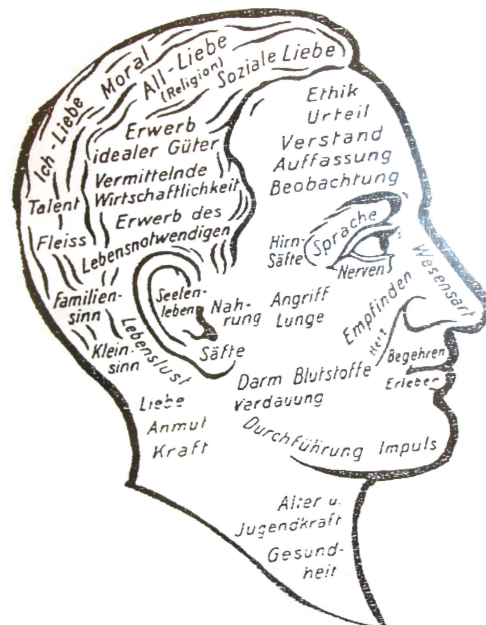 Ich-Liebe
Moral
All-Liebe
(Religion)
Soziale Liebe
Ethik
Urteil
Verstand
Auffassung
Beobachtung
Erwerb
idealer Güter
Vermittelnde
Wirtschaftlichkeit
Erwerb des
Lebensnotwendigen
Talent
Fleiss
Familien-
sinn
Klein-
sinn
Lebenslust
Seelen-
leben
Nah-
rung
Säfte
Hirn-
Säfte
Sprache
Nerven
Angriff
Lunge
Empfinden
Herz
Wesensart
Begehren
Erleber
Darm Blutstoffe
Verdauung
Durchführung Impuls
Liebe
Anmut
Kraft
Alter u.
Jugendkraft
Gesund-
heit